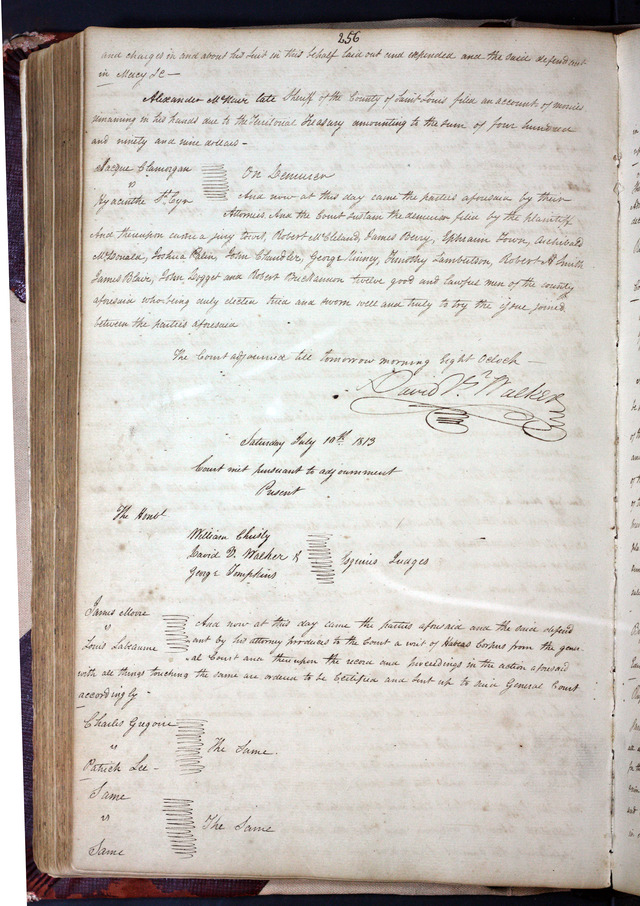 256
and charges in and about his Suit in this behalf laid out and expended and the said defendant
in Mercy &c —
Alexander McNair late Sheriff of the County of Saint Louis filed an account of monies
remaining in his hands due to the Territorial Treasury amounting to the sum of four hundred
and ninety and nine dollars -
Jacque Clamorgan
"
Hyacinthe St. Cyr
On Demurrer
And now at this day came the parties aforesaid by their
Attornies And the Court sustain the demurrer filed by the plaintiff
And thereupon came a jury towit, Robert McCleland, James Berry, Ephraim Town, Archibald
McDonald, Joshua Palin, John Chandler, George Pinney, Timothy Lambutson, Robert A Smith
James Blair, John Dogget and Robert Buckannon twelve good and lawful men of the county
aforesaid who being duly elected tried and sworn well and truly to try the issue joined
between the parties aforesaid
The Court adjourned till tomorrow morning Eight Oclock —
David V. Walker
Saturday July 10th 1813
Court met pursuant to adjournment
Present
The Honbl
William Christy
David V. Walker &
George Tompkins
Esquires Judges
James Moore
"
Louis Labeaume
And now at this day came the parties aforesaid and the said defend
ant by his attorney produces to the Court a writ of Habeas Corpus from the gene-
ral Court and thereupon the record and proceedings in the action aforesaid
with all things touching the same are ordered to be Certified and sent up to said General Court
accordingly -
Charles Gregoire
"
Patrick Lee -
The Same.
Same
"
Same
The Same